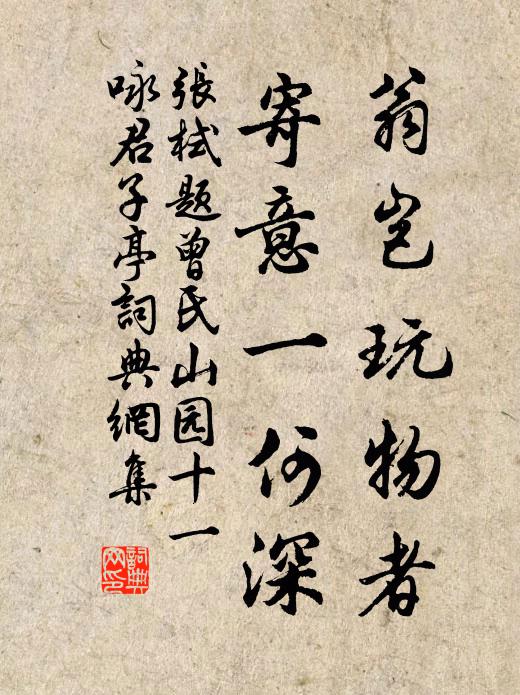 翁岂玩物者
寄意一何深
張栻题曾氏山园十一
咏君子亭詞典網集
詞典网印